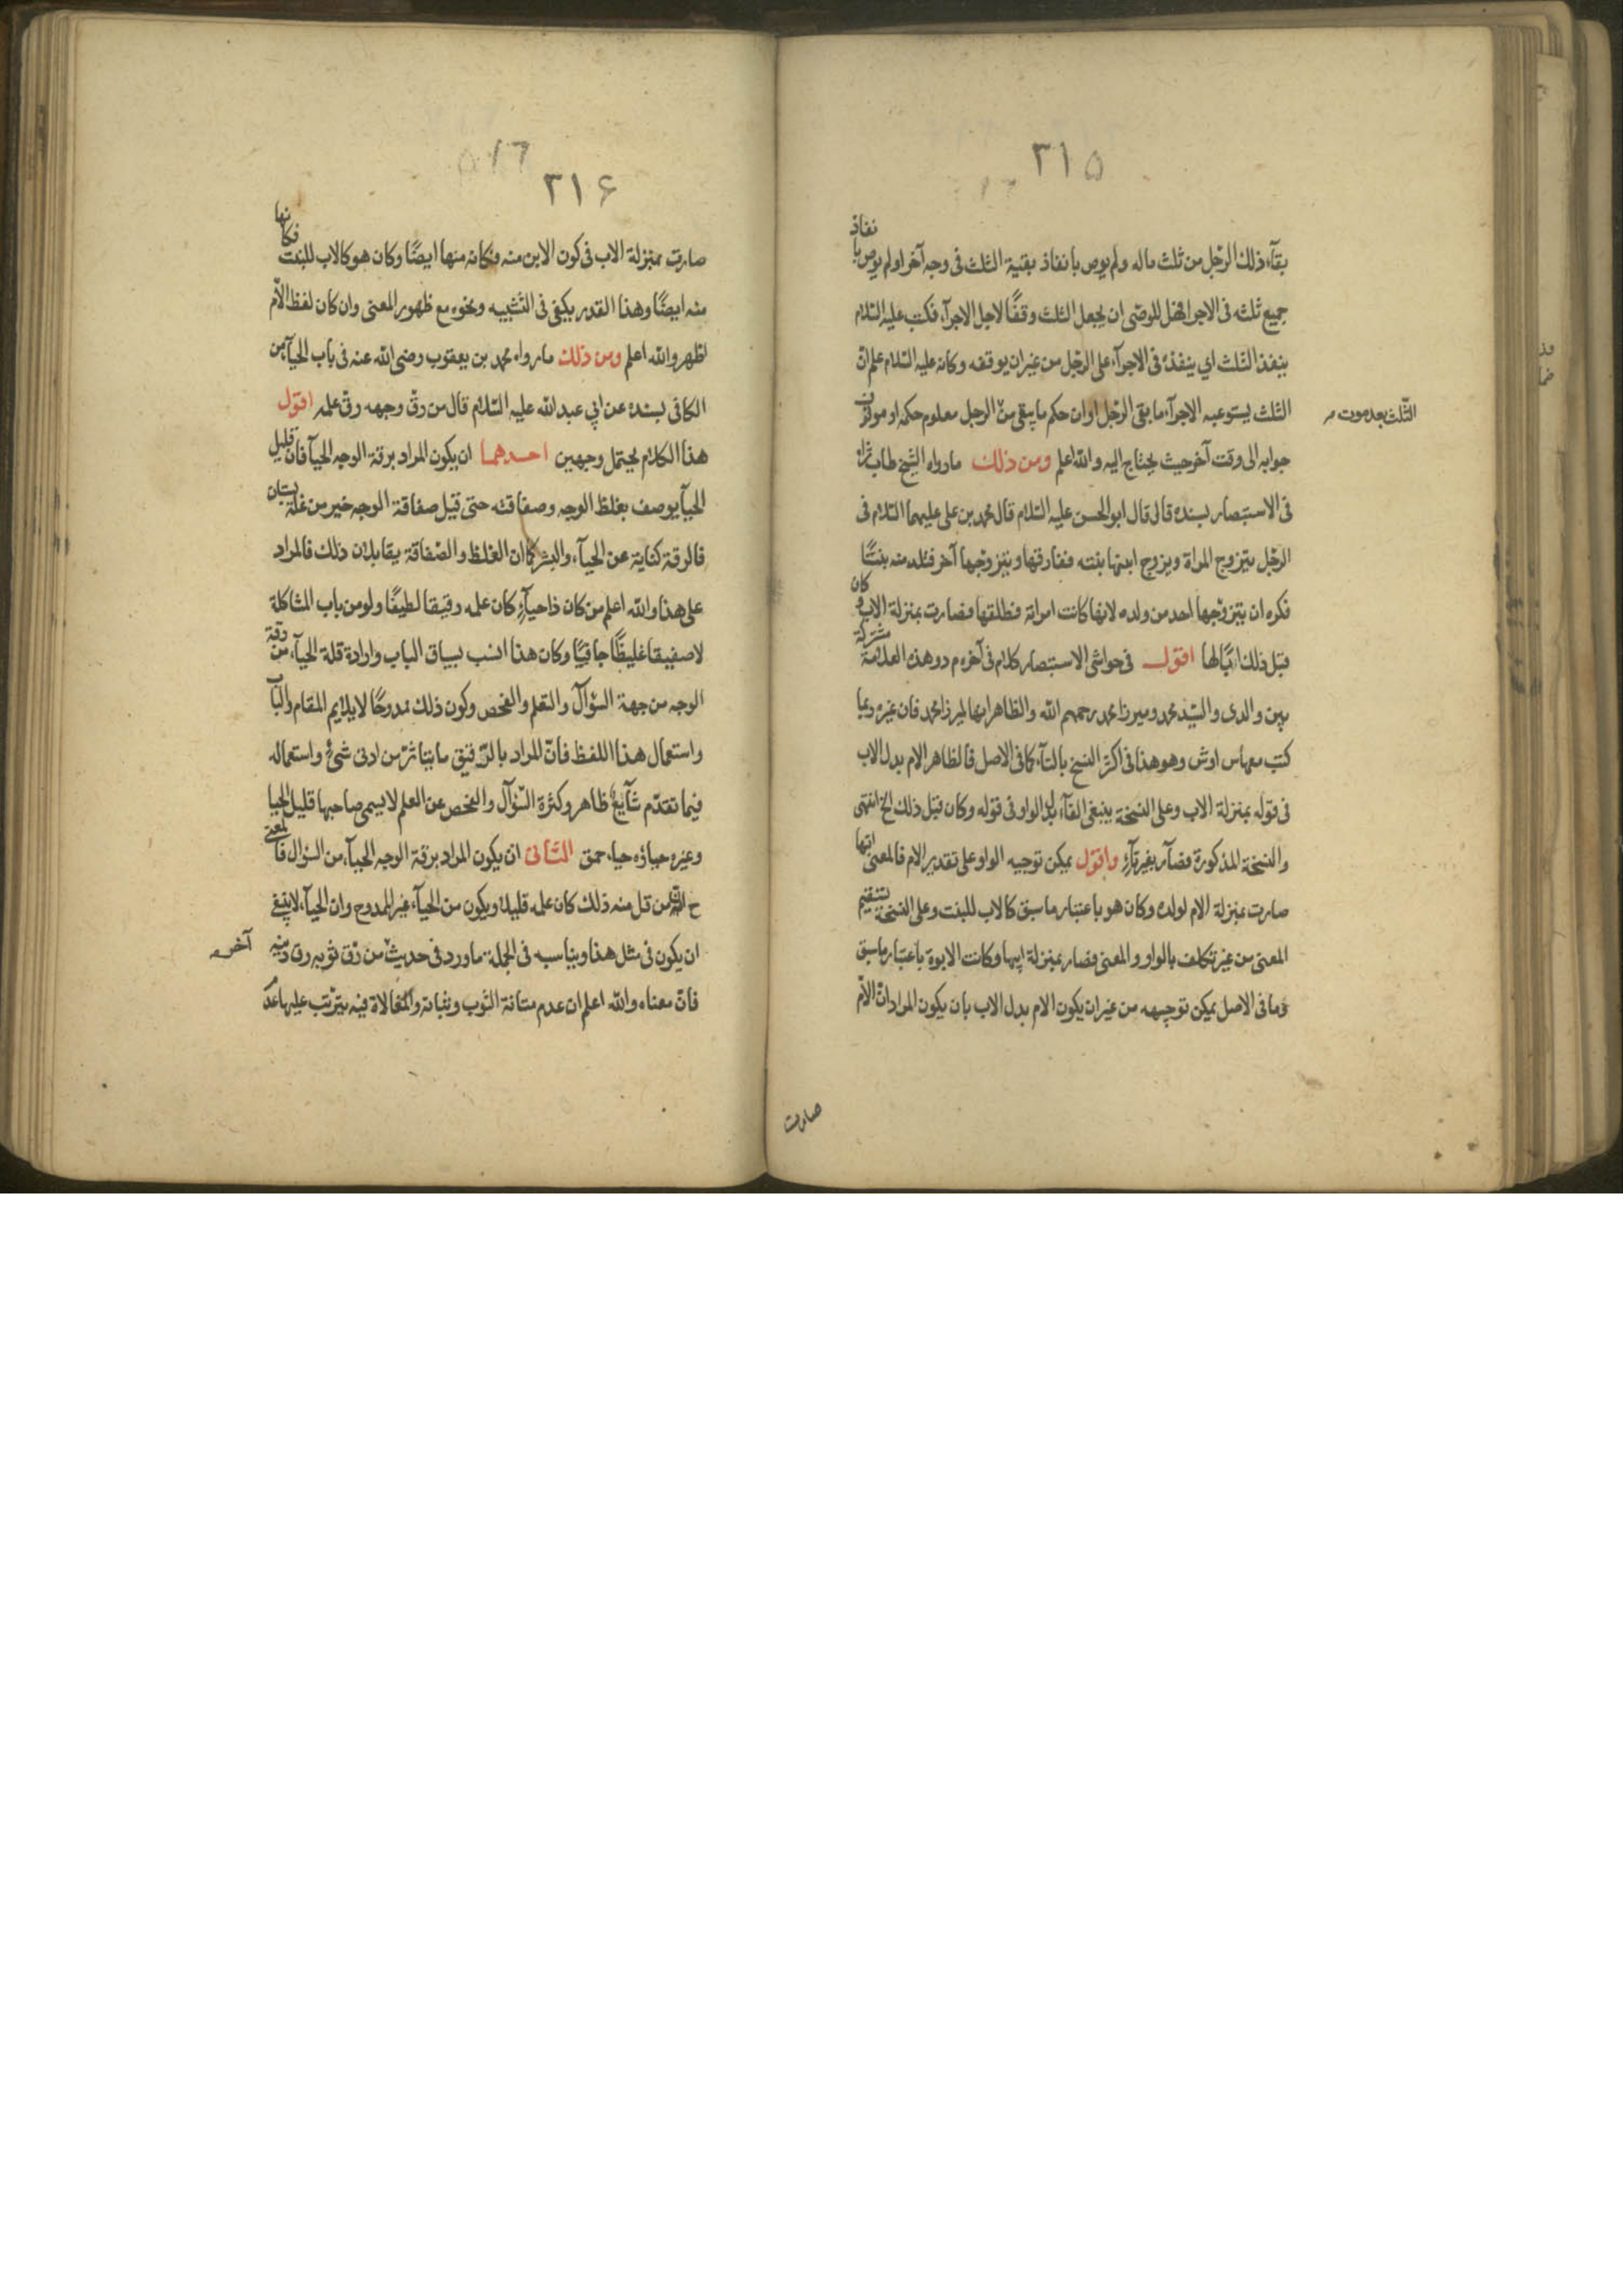 ٣١۵
بقآء ذلك الرّجل من ثلث ماله ولم يوص بانفاذ بقيّة الثلث فى وجه آخر اولم يوص با نفاذ
جميع ثلثه فى الاجرا فهل للوصّى ان يجعل الثلث وقفًا لاجل الاجرآء فكتب عليه السّلام
ينفذ الثلث اى ينفذه فى الاجرآء على الرّجل من غير ان يوقفه وكانه عليه السّلام علم انّ
الثلث يستوعبه الاجرآء ما بقى الرّجل او ان حكم ما يبقى من الرجل معلوم حكمه او
الثّلث بعد موت
جوابه الى وقت آخر حيث يحتاج اليه والله اعلم ومن ذلك ما رواه الشّيخ طاب ثراه
فى الاستبصار بسنده قال قال ابو الحسن عليه السّلام قال محمد بن على عليهما السّلام فى
الرّجل يتزوج المراة ويزوج ابنها بنته فيفارقها ويتزوّجها آخر فتلد منه بنتًا
فكره ان يتزوّجها احد من ولده لانها كانت امراته فطلّقها فصارت بمنزلة الاب وكان
قبل ذلك ابًا لها اقول فى حواشى الاستبصار كلام فى آخره م د وهذه العلامة مشتركة
بين والدى والسّيّد محمد وميرزا محمد رحمهم الله والظاهر انها لميرزا محمد فان غيره ربما
كتب معها س اوش وهو هذا فى اكثر النسخ بالتآء كما فى الاصل فالظاهر الام بدل الاب
فى قوله بمنزلة الاب وعلى النسخة ينبغى الفآء بدل الواو فى قوله وكان قبل ذلك الخ انتهى
والنسخة المذكورة فصآر بغير تآءٍ واقول يمكن توجيه الواو على تقدير الام فالمعنى انها
صارت بمنزلة الام لولده وكان هو باعتبار ما سبق كالاب للبنت وعلى النسخة يستقيم
المعنى من غير تكلف بالواو والمعنى فصار بمنزلة ابيها وكانت الابوة باعتبار ما سبق
وما فى الاصل يمكن توجيهه من غير ان يكون الام بدل الاب بان يكون المراد انّ الامّ
صارت
٣١۶
صارت بمنزلة الاب فى كون الابن منه فكانه منها ايضًا وكان هو كالاب للبنت فكانها
منه ايضًا وهذا القدر يكفى فى التشبيه ونحوه مع ظهور المعنى وان كان لفظ الامّ
اظهر والله اعلم ومن ذلك ما رواه محمد بن يعقوب رضى الله عنه فى باب الحيآء من
الكافى بسنده عن ابى عبد الله عليه السّلام قال من رقّ وجهه رقّ علمه اقول
هذا الكلام يحتمل وجهين احدهما ان يكون المراد برقة الوجه الحيآء فان قليل
الحيآ يوصف بغلظ الوجه وصفاقته حتى قيل صفاقة الوجه خير من غلّة بستان
فالرقة كناية عن الحيآء والبشر كما ان الغلظ والصّفاقة يقابلان ذلك فالمراد
على هذا والله اعلم من كان ذا حيآءٍ كان علمه رقيقا لطيفًا ولو من باب المشاكلة
لاصفيقا غليظًا جافيًا وكان هذا انسب بسياق الباب وارادة قلة الحيآء من رقة
الوجه من جهة السّؤال والتعلم والفحص وكون ذلك ممدوحًا لا يلايم المقام والبآب
واستعمال هذا اللفظ فانّ المراد بالرّقيق ما يتاثر من ادنى شىء واستعماله
فيما تقدّم شآيعٌ ظاهر وكثرة السّؤال والفحص عن العلم لا يسمى صاحبها قليل الحيا
وغيره حياؤه حياء حمق الثّانى ان يكون المراد برقة الوجه الحيآء من السؤال فالمعنى
ح انّ من قل منه ذلك كان علمه قليلا ويكون من الحيآء غير الممدوح وان الحيآء لا ينبغى
ان يكون فى مثل هذا ويناسبه فى الجملة ما ورد فى حديث من رّق ثوبه رق دينه
آخر
فانّ معناه والله اعلم ان عدم متانة الثوب وثباته والمغالاة فيه يترتب عليها عد